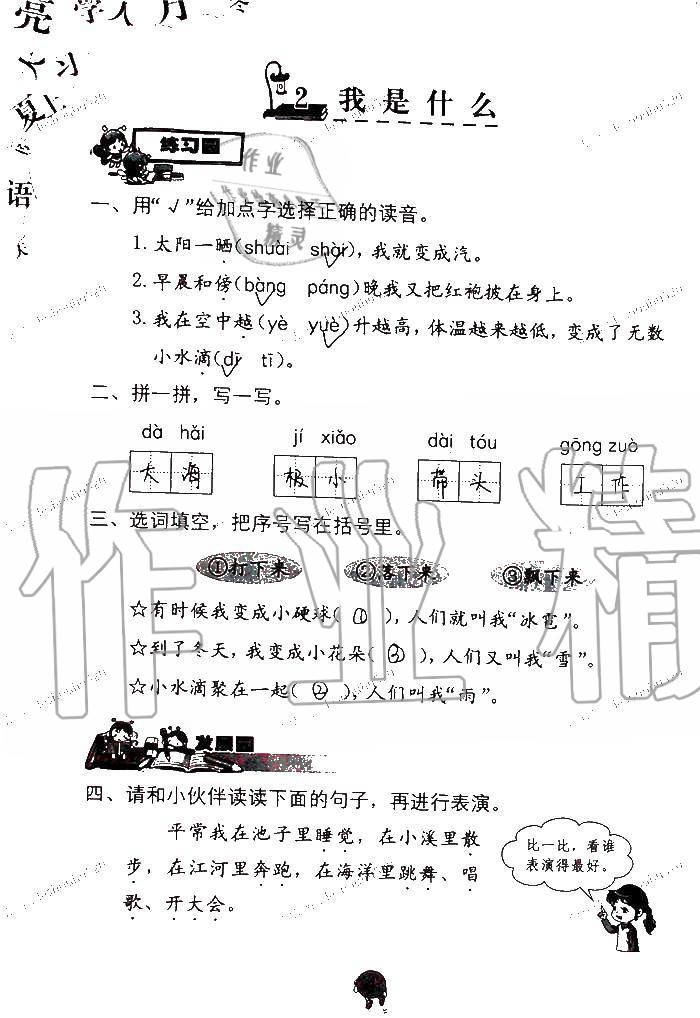 亮 学 人 月 冬
习
夏 上
语
2 我是什么
练习园
一、用“√”给加点字选择正确的读音。
1. 太阳一晒(shuài shài)，我就变成汽。
2. 早晨和傍(bàng páng)晚我又把红袍披在身上。
3. 我在空中越(yè yuè)升越高，体温越来越低，变成了无数
小水滴(dī tī)。
二、拼一拼，写一写。
dà hǎi jí xiǎo dài tóu gōng zuò
大海 极小 带头 工作
三、选词填空，把序号写在括号里。
①打下来 ②落下来 ③飘下来
☆有时候我变成小硬球( ① )，人们就叫我“冰雹”。
☆到了冬天，我变成小花朵( ③ )，人们又叫我“雪”。
☆小水滴聚在一起( ② )，人们叫我“雨”。
发展园
四、请和小伙伴读读下面的句子，再进行表演。
平常我在池子里睡觉，在小溪里散
步，在江河里奔跑，在海洋里跳舞、唱
歌、开大会。
比一比，看谁
表演得最好。
作业精
作业
精灵